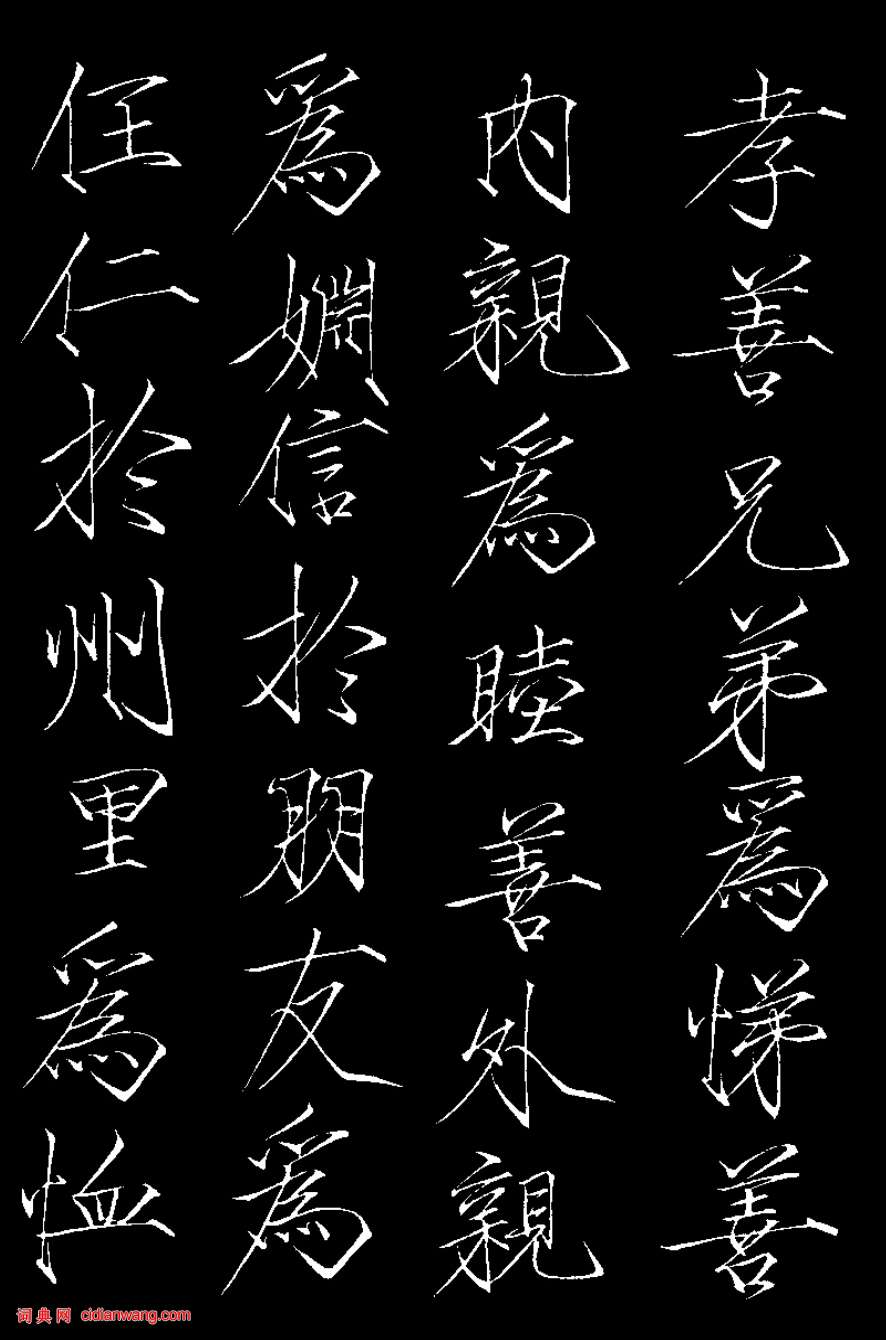 孝善兄弟爲悌善
內親爲睦善外親
爲婣信於朋友爲
任仁於州里爲恤
词典网 cidianwang.com